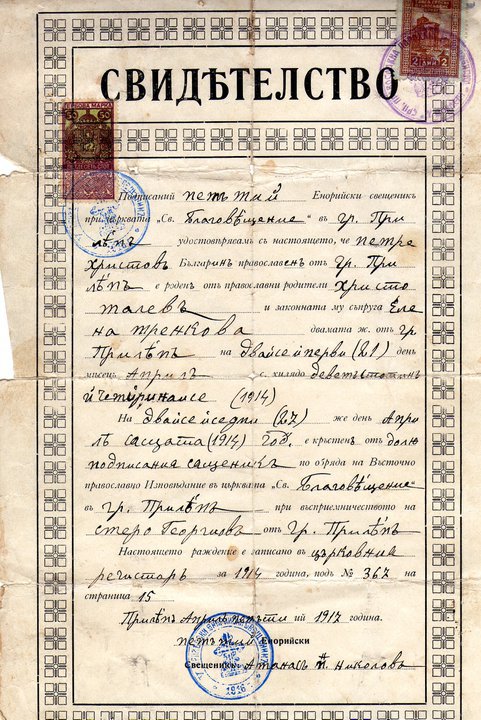 СВИДѢТЕЛСТВО
Подписаний петътий Енорийски свещеникъ
при църквата „Св. Благовѣщение" въ гр. При
лѣпъ удостовѣрявамъ съ настоящето, че петре
Христовъ Българинъ православенъ отъ гр. При
лѣпъ е роденъ отъ православни родители Христо
талевъ и законната му съпруга Еле
на тренкова двамата ж. отъ гр.
Прилѣпъ на двайсе и перви (21) день
мисецъ Априлъ с. хилядо деветьстотинъ
и четиринаисе (1914)
На двайсе и седми (27) же день Апри
лъ сащата (1914) год. е кръстенъ отъ долю
подписания сащеникъ по обряда на Въсточно
православно Изповѣдание въ църквата „Св. Благовѣщение"
въ гр. Прилѣпъ при възприемничеството на
стеро Георгиовъ отъ гр. Прилѣпъ
Настоящето раждение е записано въ църковния
регистаръ за 1914 година, подъ № 367 на
страница 15
Прилѣпъ Априлъ петъти ий 1917 година.
петътий Енорийски
Свещеникъ Атанасъ Н. Николовъ
1916